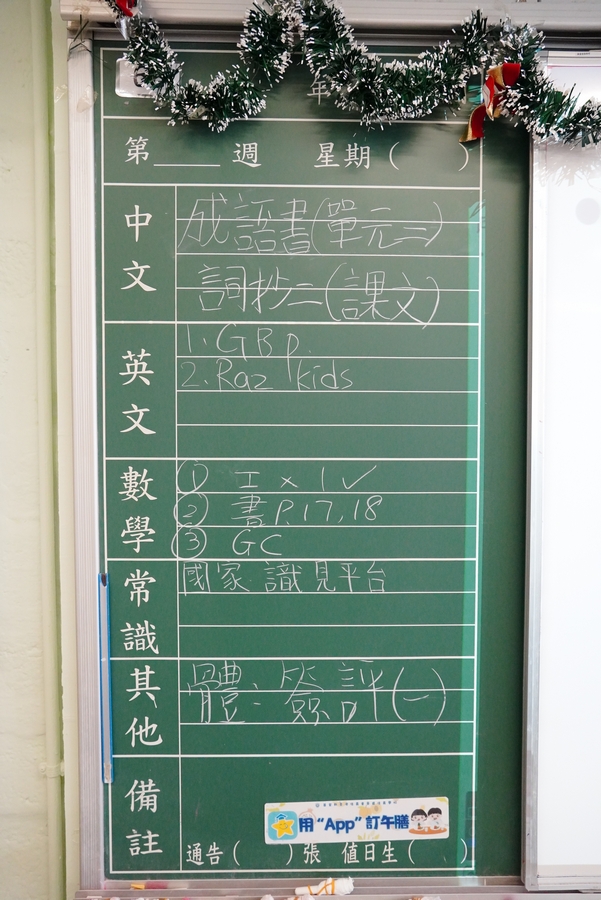 年
第____週 星期( )
中文
成語書(單元二)
詞抄二(課文)
英文
1. GB p.
2. Raz kids
數學
① 工 x 1 ✓
② 書 P.17,18
③ GC
常識
國家.識見平台
其他
體:簽評(一)
備註
用“App”訂午膳
通告( )張 值日生( )